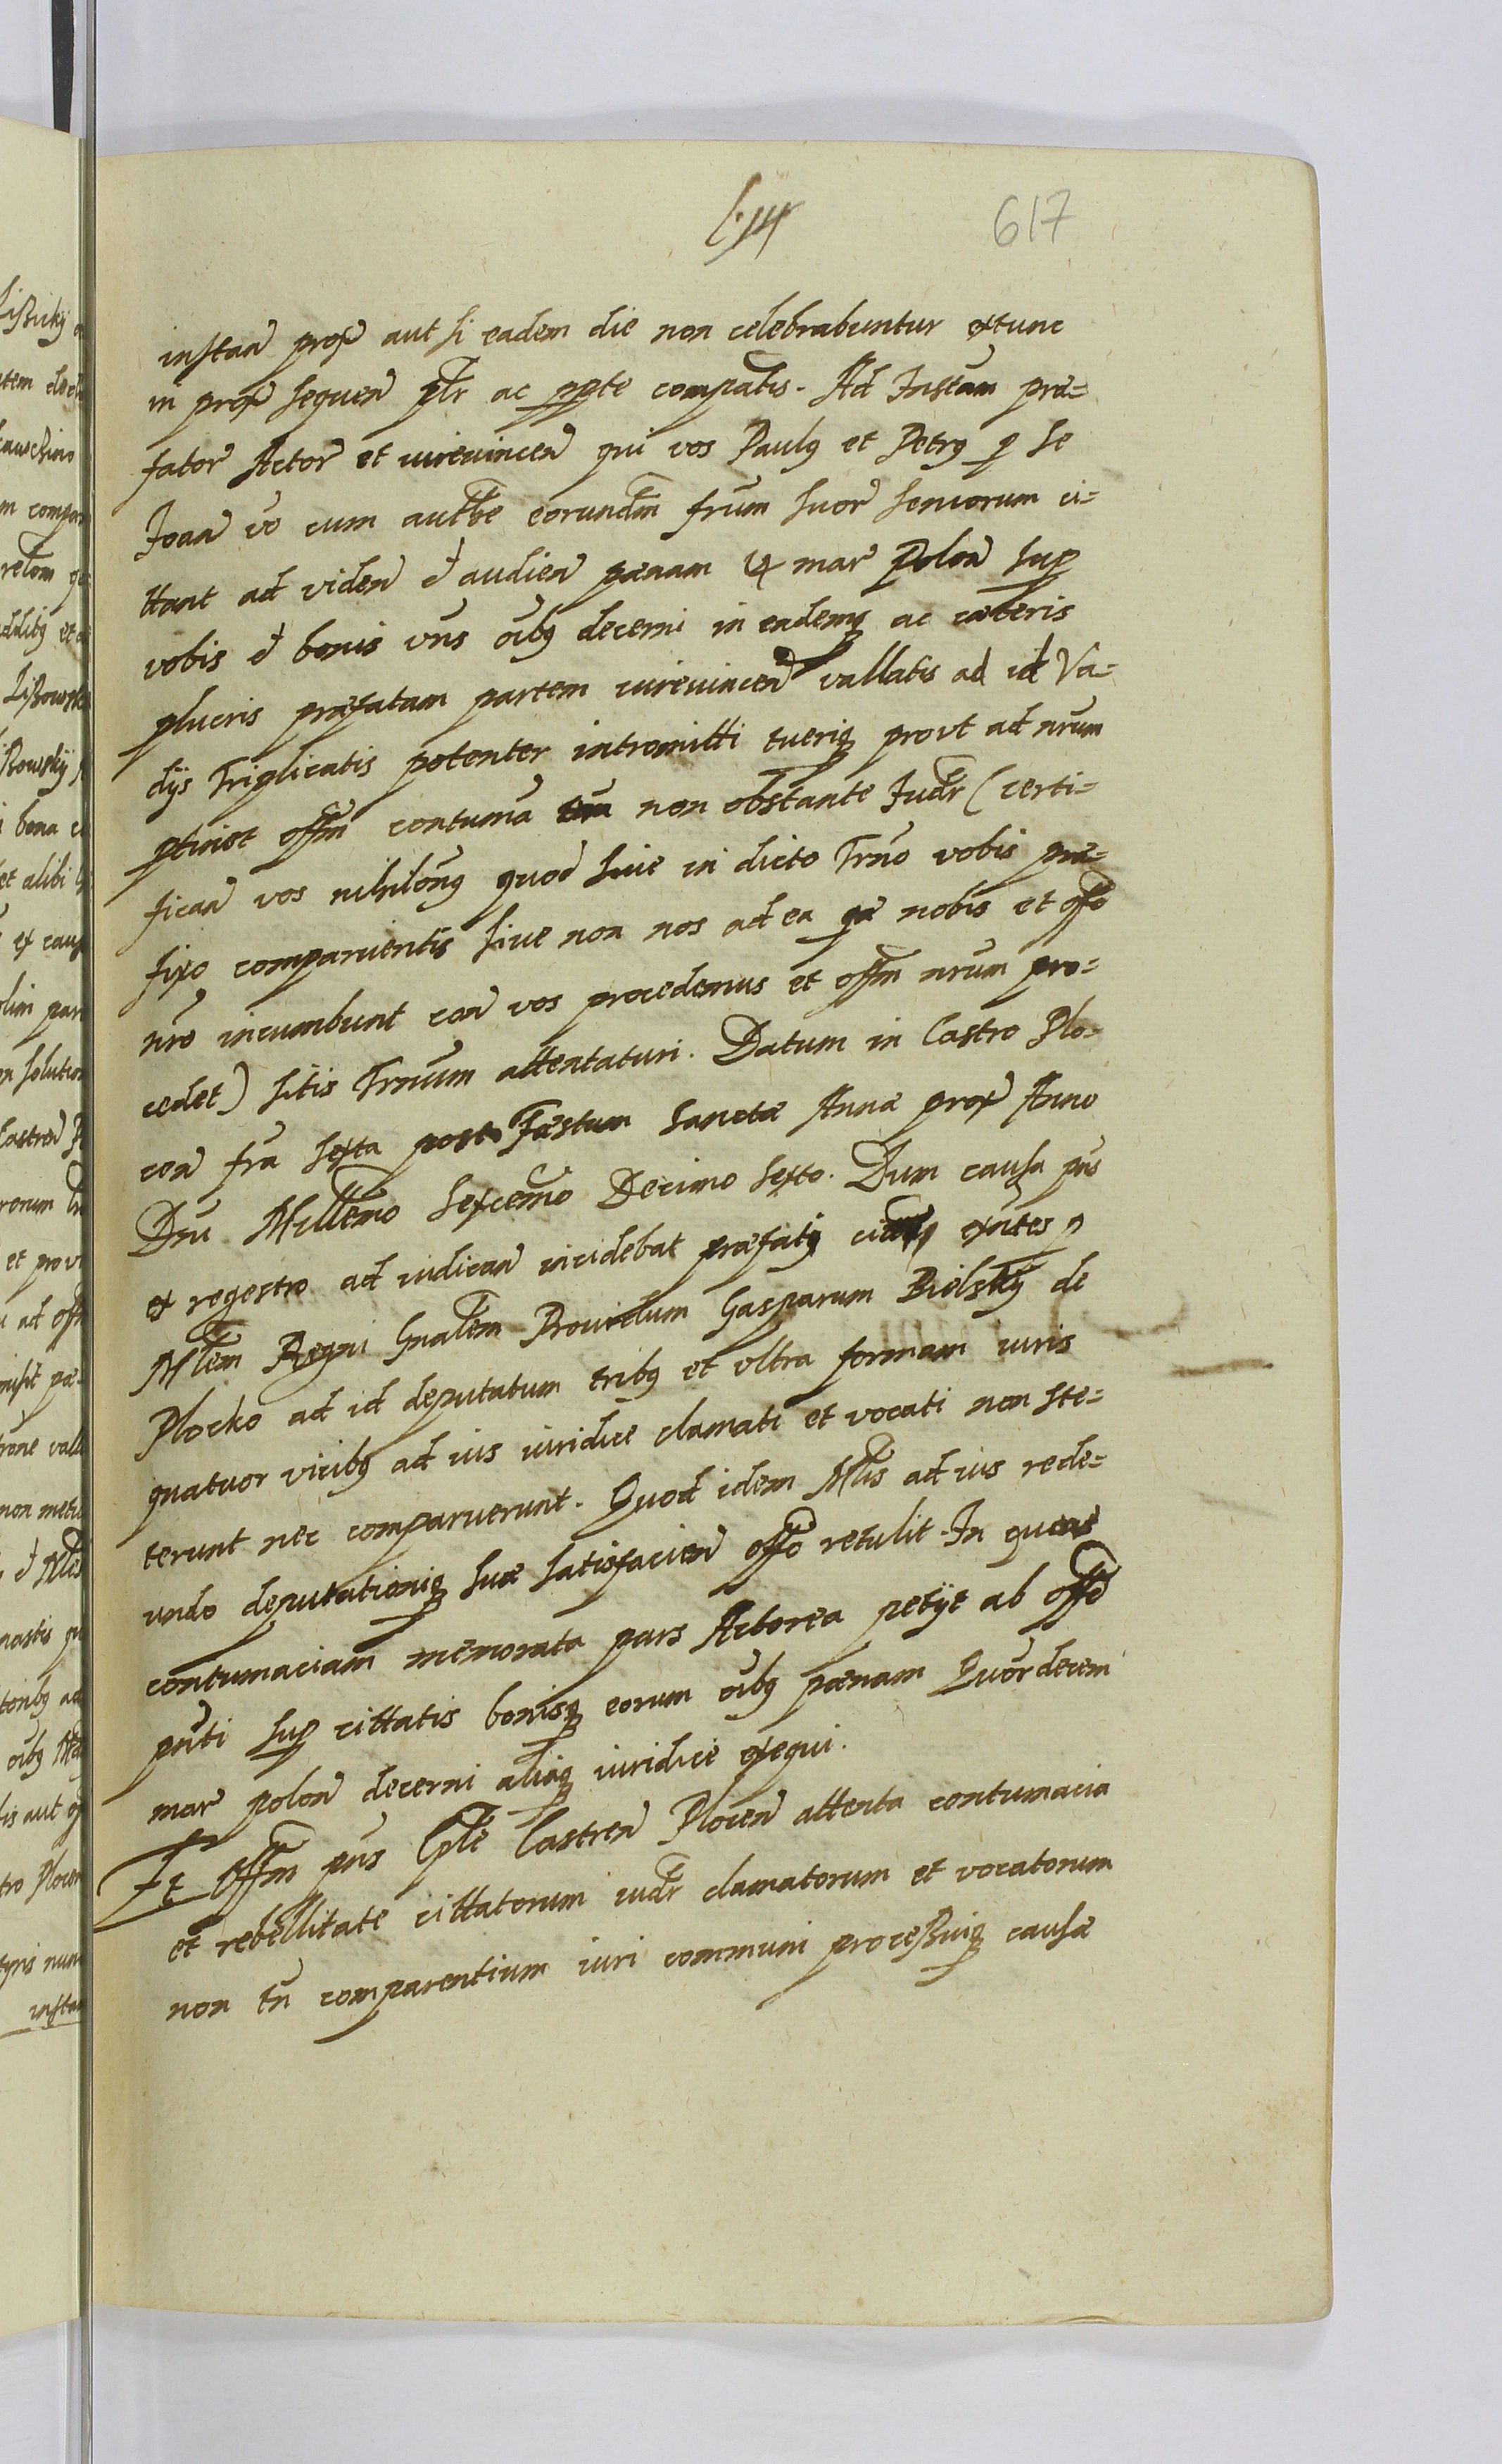 617
instan prox aut si eadem die non celebrabuntur extunc
in prox sequen ptr ac ppte compatis. Ad Instam præ=
fator Actor et iurevincen qui vos Paulq et Petrq p se
Joan vo cum autte eorundm frum suor seniorum ci=
ttant ad viden et audien pænam mar Polon sup
vobis et bonis vris oibq decerni in eademq ac cæteris
plueris præfatam partem iurevincen vallatis ad id Va=
dys Triplicatis potenter intromitti tueriq prout ad nrum
ptinet offm contuma non obstante Judr (certi=
fican vos nihilonq quod siue in dicto Trno vobis præ=
fixo comparueritis siue non nos ad ea quæ nobis et offo
nro incumbunt con vos procedemus et offm nrum pro=
cedet) sitis Trnum attentaturi. Datum in Castro Plo=
cen fra sexta post Fæstum Sanctæ Annæ prox Anno
Dni Millemo Sexcemo Decimo Sexto. Dum causa pns
ex regestro ad iudican incidebat præfatq exntes p
Mlem Regni Gnalem Prouidum Gasparum Bielsky de
Plocko ad id deputatum tribq et vltra formam iuris
quatuor vicibq ad ius iuridice clamati et vocati non ste=
terunt nec comparuerunt. Quod idem Mlis ad ius rede=
undo deputationiq suæ satisfacien offo retulit. In quorum
contumaciam memorata pars Actorea petyt ab offo
pnti sup cittatis bonisq eorum oibq pænam Quordecem
mar polon decerni aliaq iuridice exequi.
Et Offm pns Cple Castren Plocen attenta contumacia
et rebellitate cittatorum iudr clamatorum et vocatorum
non tn comparentium iuri communi processuiq causæ